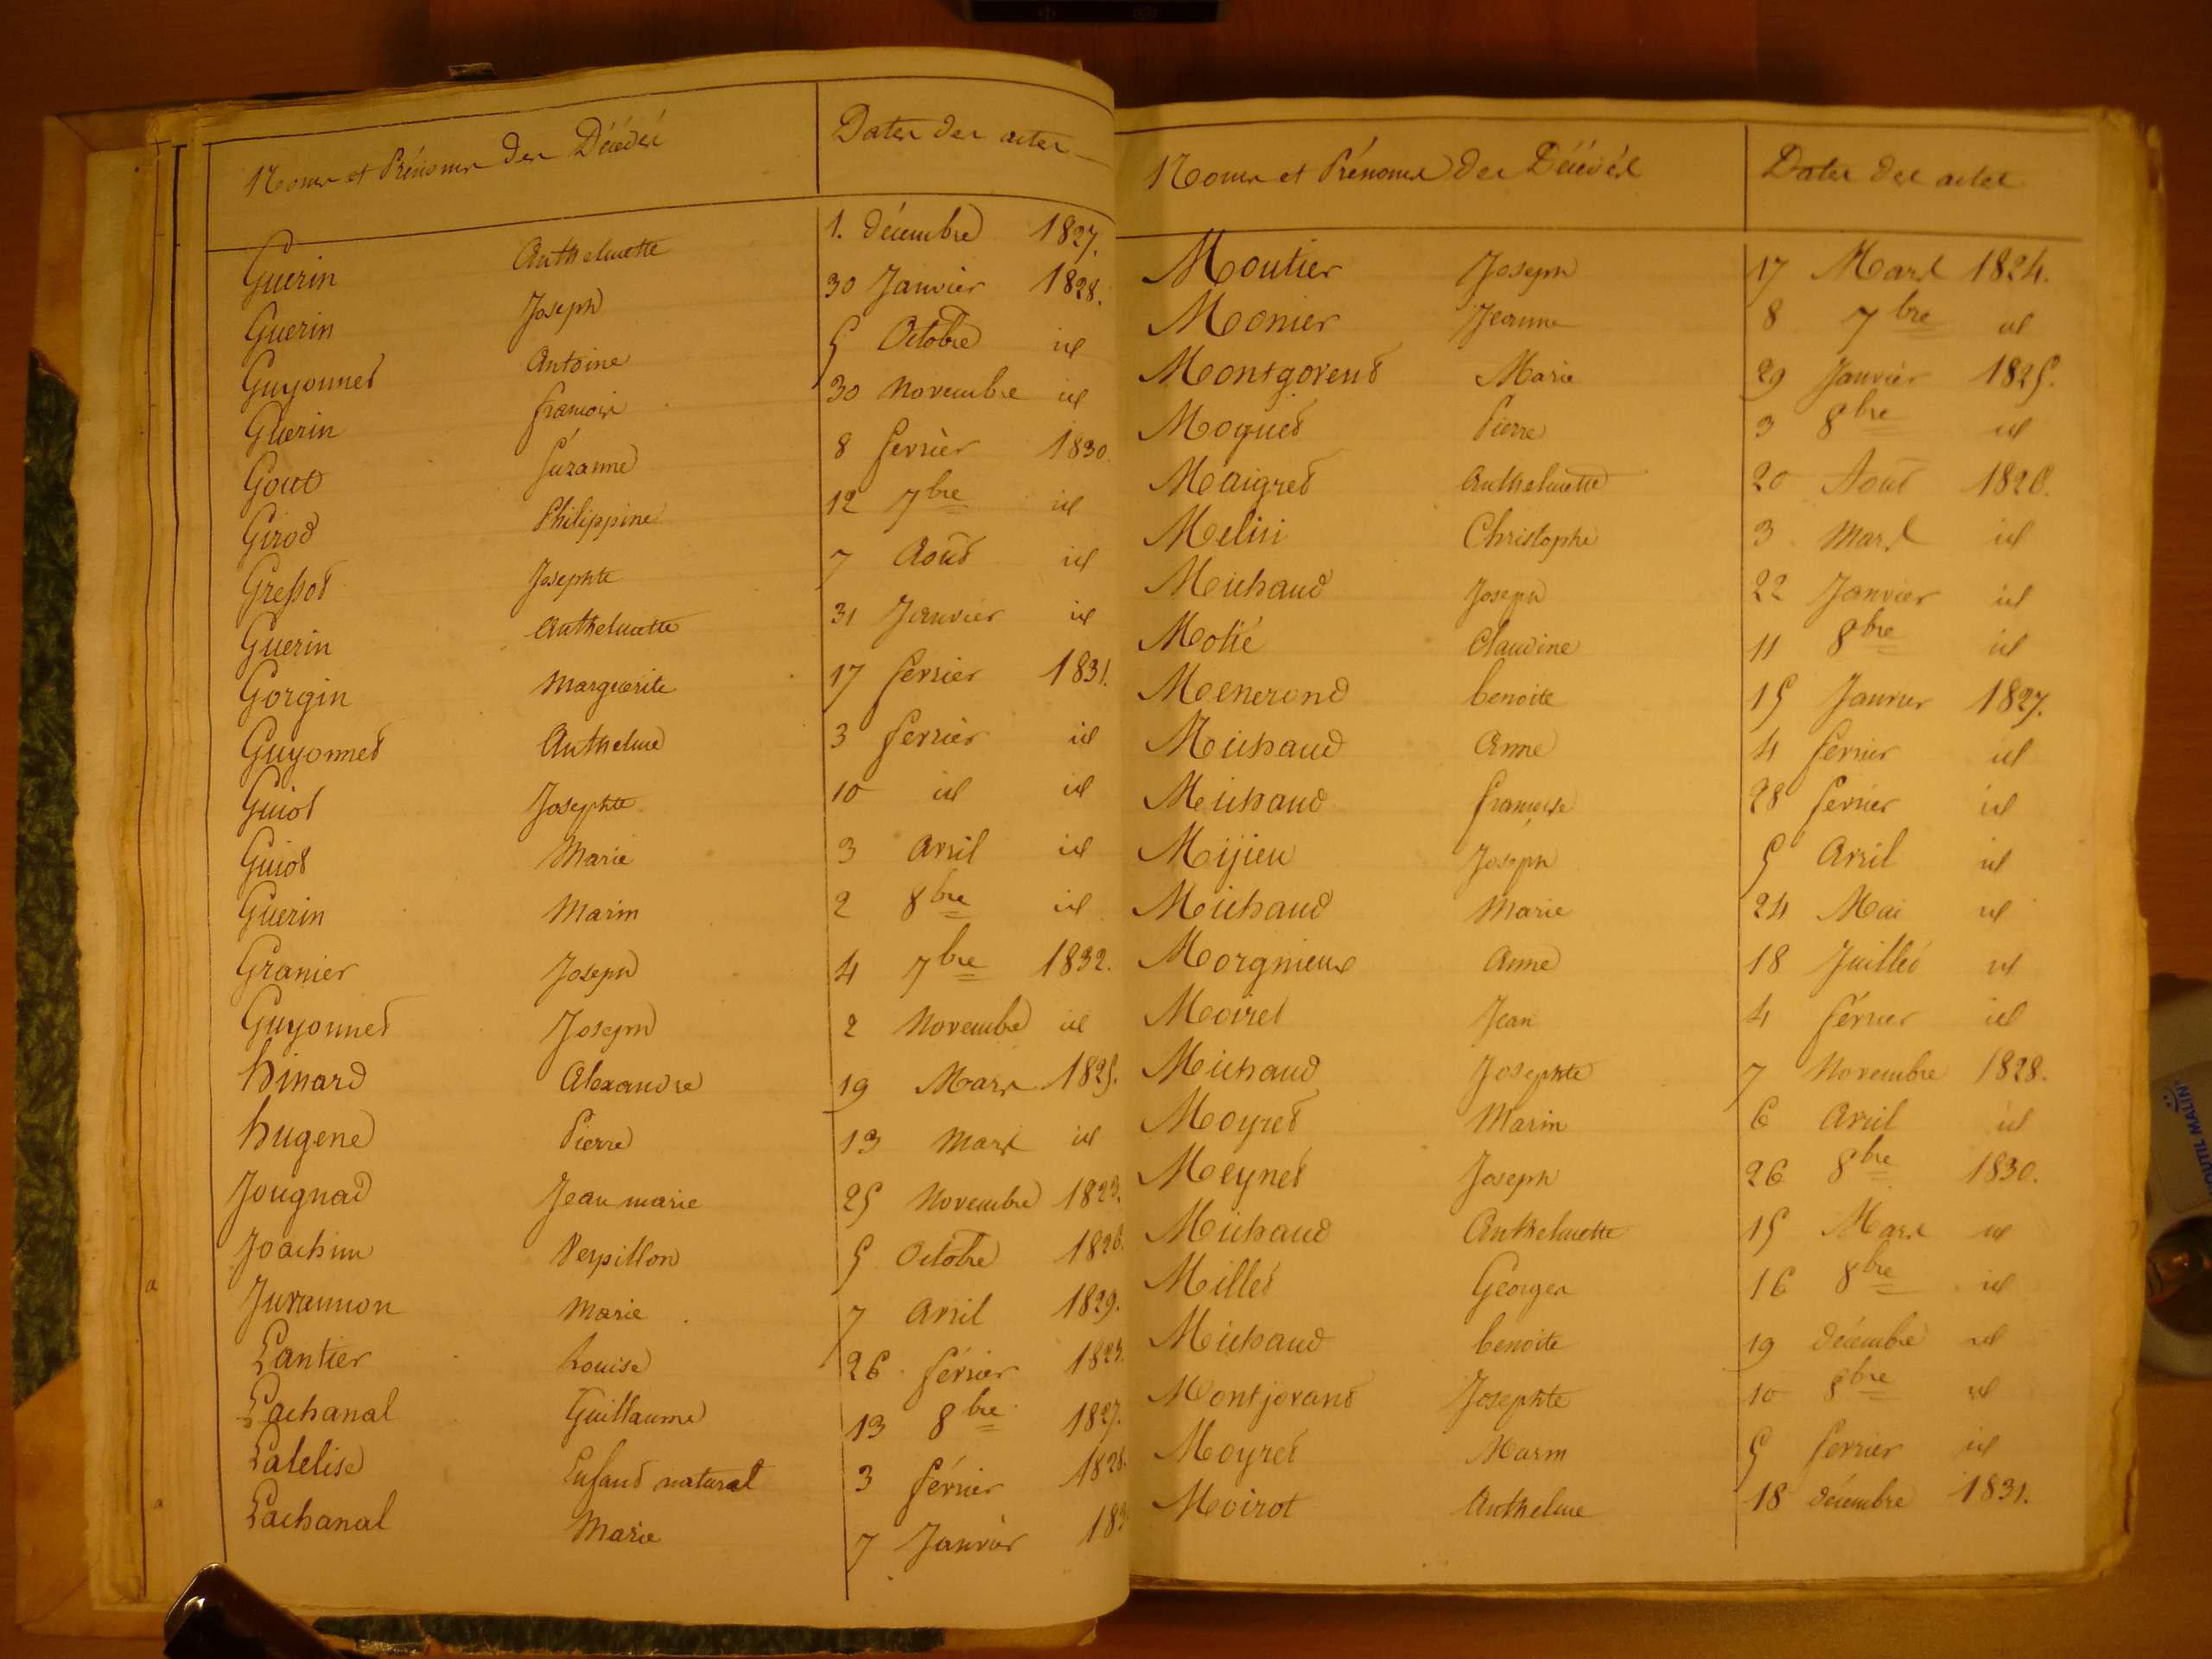 Noms et Prénoms des Décédés Dates des actes
Guerin Anthelmette 1. décembre 1827.
Guerin Joseph 30 Janvier 1828.
Guyonnet Antoine 5 Octobre id
Guerin francois 30 Novembre id
Gout Suzanne 8 fevrier 1830.
Girod Philippine 12 7bre id
Gressot Josephte 7 Août id
Guerin Anthelmette 31 Janvier id
Gorgin Marguerite 17 fevrier 1831.
Guyonnet Anthelme 3 fevrier id
Guiot Josephte 10 id id
Guiot Marie 3 Avril id
Guerin Marin 2 8bre id
Granier Joseph 4 7bre 1832.
Guyonnet Joseph 2 Novembre id
hinard Alexandre 19 Mars 1825.
hugene Pierre 13 Mars id
Jougnad Jean marie 25 Novembre 1823.
Joachim Verpillon 5 Octobre 1826.
Jurannon Marie 7 Avril 1829.
Lantier Louise 26 février 1823.
Lachanal Guillaume 13 8bre 1827.
Lalelise Enfant naturel 3 février 1828.
Lachanal Marie 7 Janvier 183
Noms et Prénoms des Décédés Dates des actes
Moutier Joseph 17 Mars 1824.
Monier Jeanne 8 7bre id
Montgorend Marie 29 Janvier 1825.
Moguet Pierre 3 8bre id
Maigret Anthelmette 20 Aout 1826.
Melin Christophe 3 Mars id
Michaud Joseph 22 Janvier id
Molié Claudine 11 8bre id
Menerond benoite 15 Janvier 1827.
Michaud Anne 4 fevrier id
Michaud francoise 28 fevrier id
Mijieu Joseph 5 Avril id
Michaud Marie 24 Mai id
Morgnieux Anne 18 Juillet id
Moiret Jean 4 février id
Michaud Josephte 7 Novembre 1828.
Moyret Marin 6 Avril id
Meynet Joseph 26 8bre 1830.
Michaud Anthelmette 15 Mars id
Millet Georges 16 8bre id
Michaud benoite 19 décembre id
Montjovand Josephte 10 8bre id
Moyret Marin 5 fevrier id
Moirot Anthelme 18 décembre 1831.
OUTIL MALIN